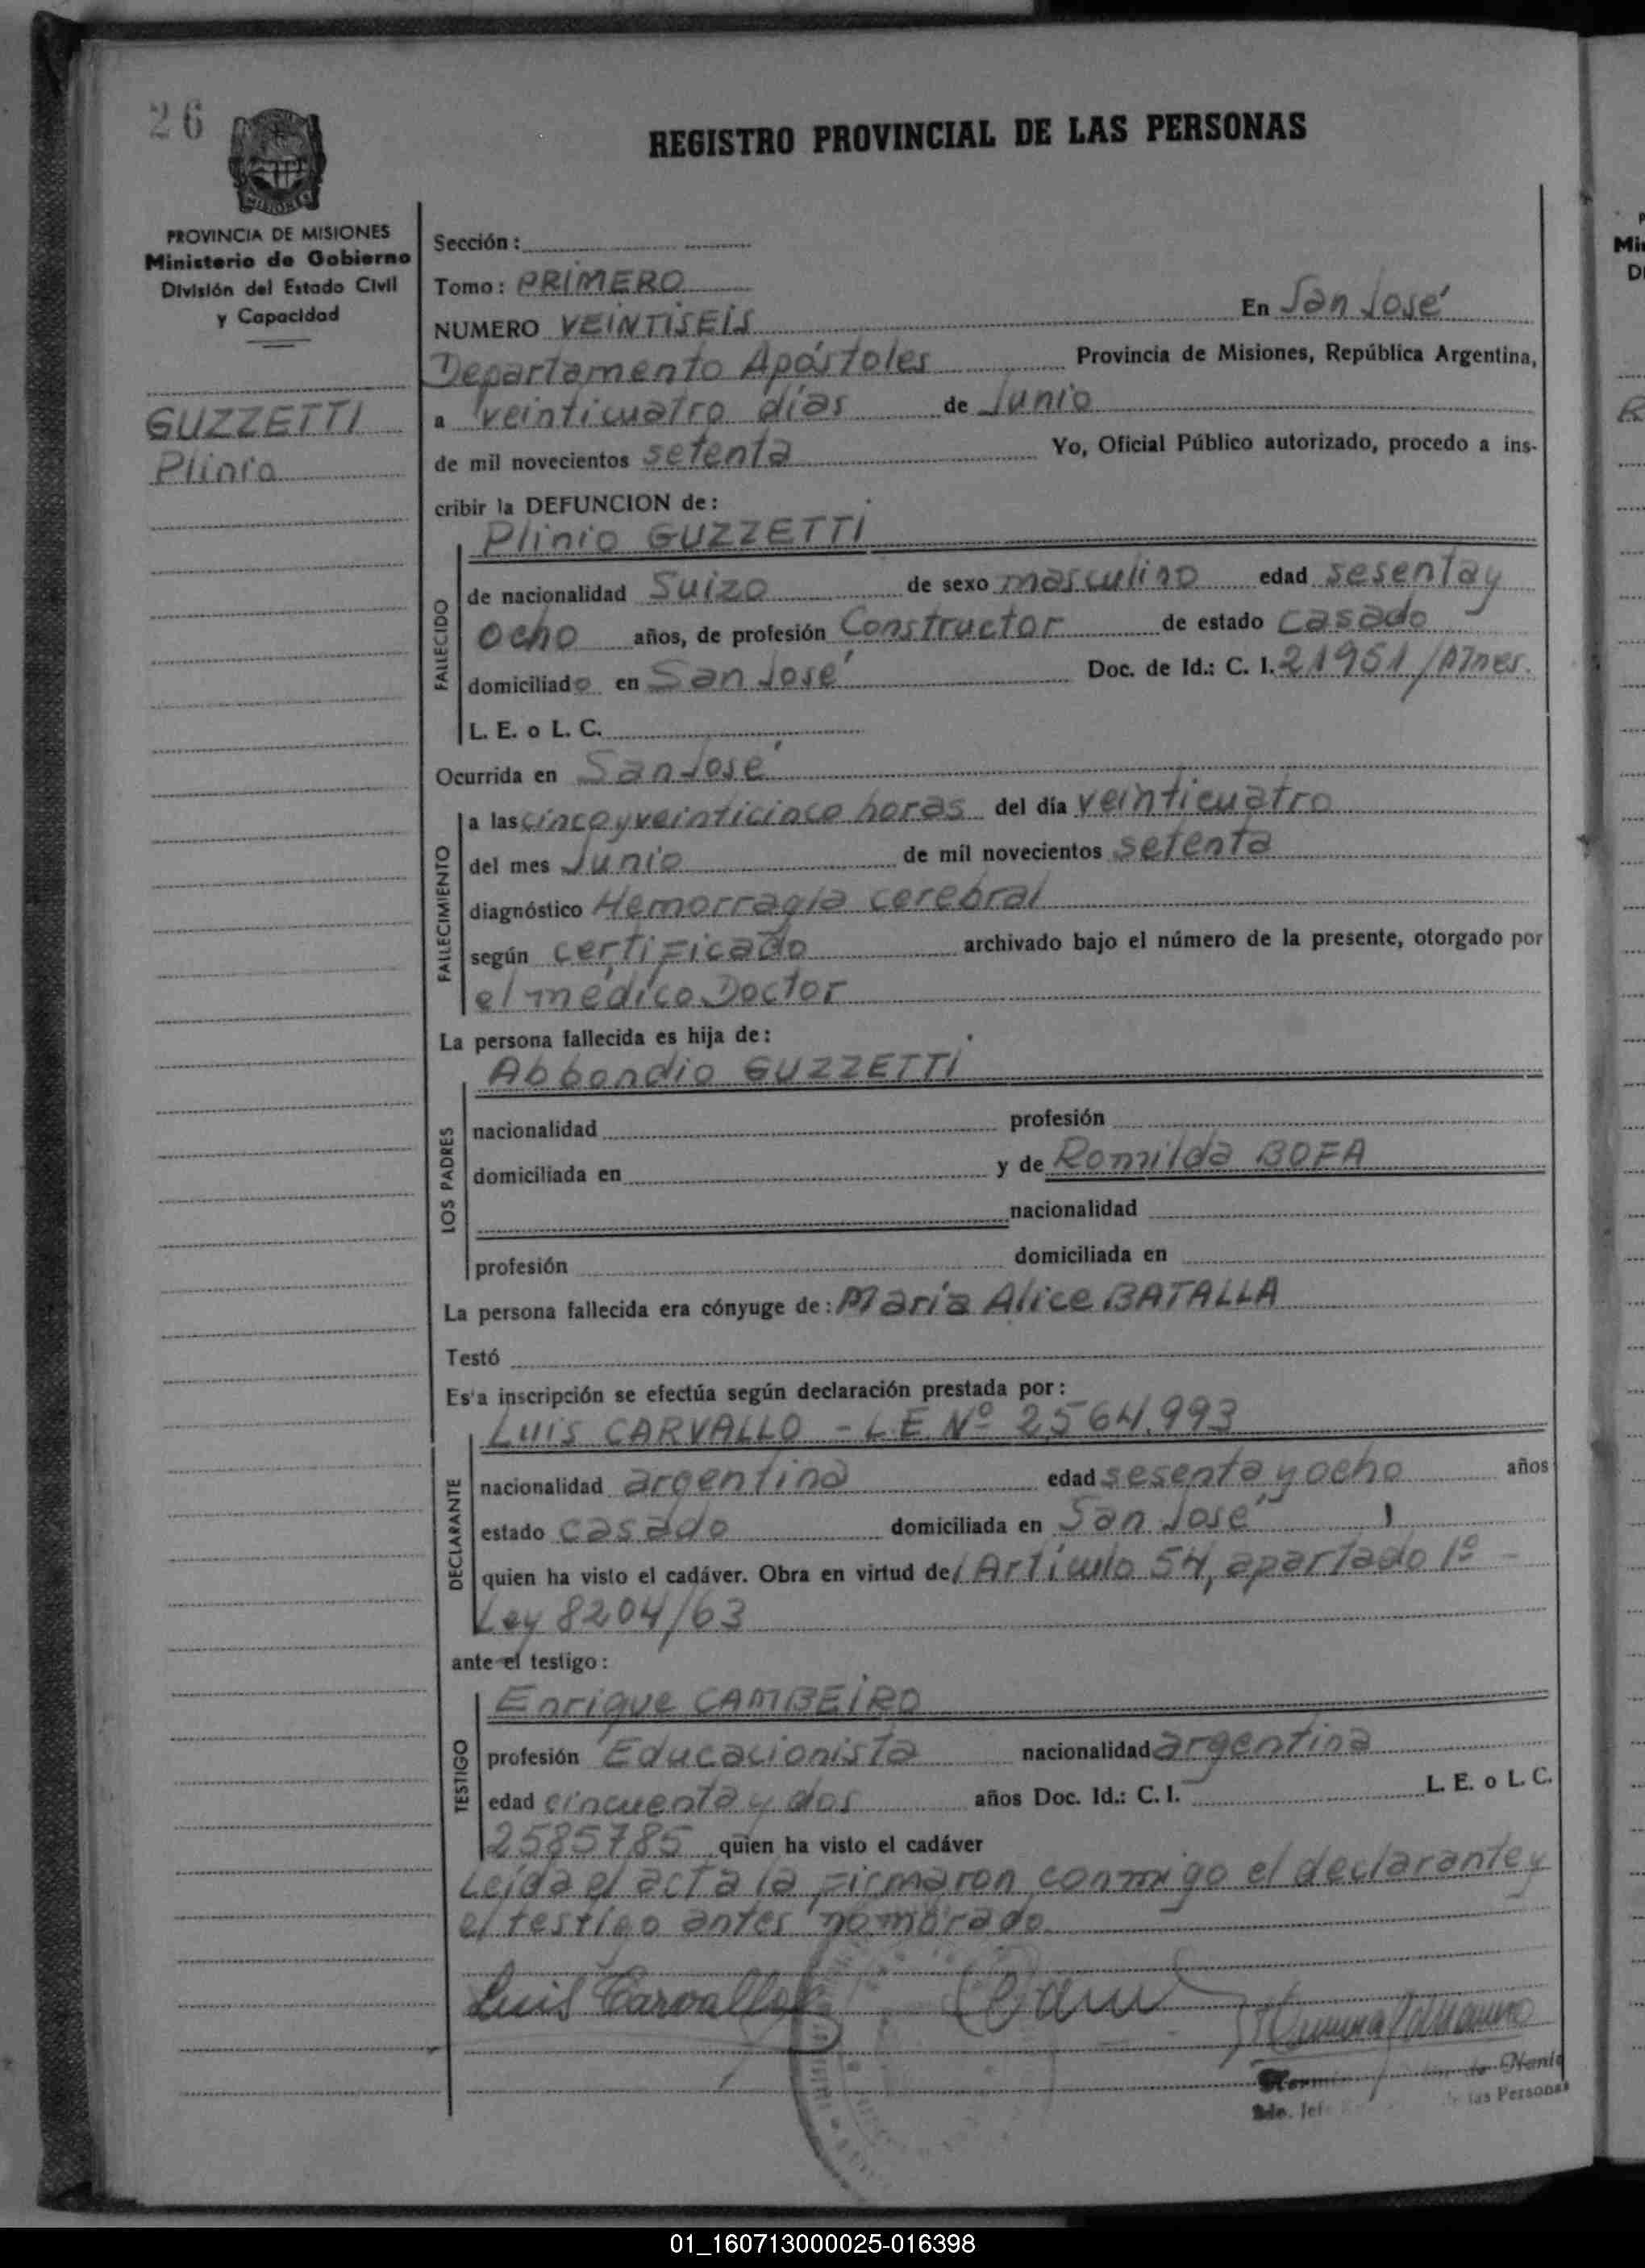 26
REGISTRO PROVINCIAL DE LAS PERSONAS
MISIONES
PROVINCIA DE MISIONES
Ministerio de Gobierno
División del Estado Civil
y Capacidad
GUZZETTI
Plinio
Sección:
Tomo: PRIMERO
NUMERO VEINTISEIS En San José
Departamento Apóstoles Provincia de Misiones, República Argentina,
a veinticuatro días de Junio
de mil novecientos setenta Yo, Oficial Público autorizado, procedo a ins-
cribir la DEFUNCION de:
FALLECIDO
Plinio GUZZETTI
de nacionalidad Suizo de sexo masculino edad sesenta y
ocho años, de profesión Constructor de estado casado
domiciliado en San José Doc. de Id.: C. I. 21951/Mnes.
L. E. o L. C.
Ocurrida en San José
FALLECIMIENTO
a las cinco y veinticinco horas del día veinticuatro
del mes Junio de mil novecientos setenta
diagnóstico Hemorragia cerebral
según certificado archivado bajo el número de la presente, otorgado por
el médico Doctor
La persona fallecida es hija de:
LOS PADRES
Abbondio GUZZETTI
nacionalidad profesión
domiciliada en y de Romilda BOFA
nacionalidad
profesión domiciliada en
La persona fallecida era cónyuge de: María Alice BATALLA
Testó
Es'a inscripción se efectúa según declaración prestada por:
DECLARANTE
Luis CARVALLO - L.E. Nº 2.564.993
nacionalidad argentina edad sesenta y ocho años
estado casado domiciliada en San José
quien ha visto el cadáver. Obra en virtud del Artículo 54, apartado 1º -
Ley 8204/63
ante el testigo:
TESTIGO
Enrique CAMBEIRO
profesión Educacionista nacionalidad argentina
edad cincuenta y dos años Doc. Id.: C. I. L. E. o L. C.
2585785 quien ha visto el cadáver
Leída el acta la firmaron conmigo el declarante y
el testigo antes nombrado
Luis Carvallo
de las Personas
01_160713000025-016398